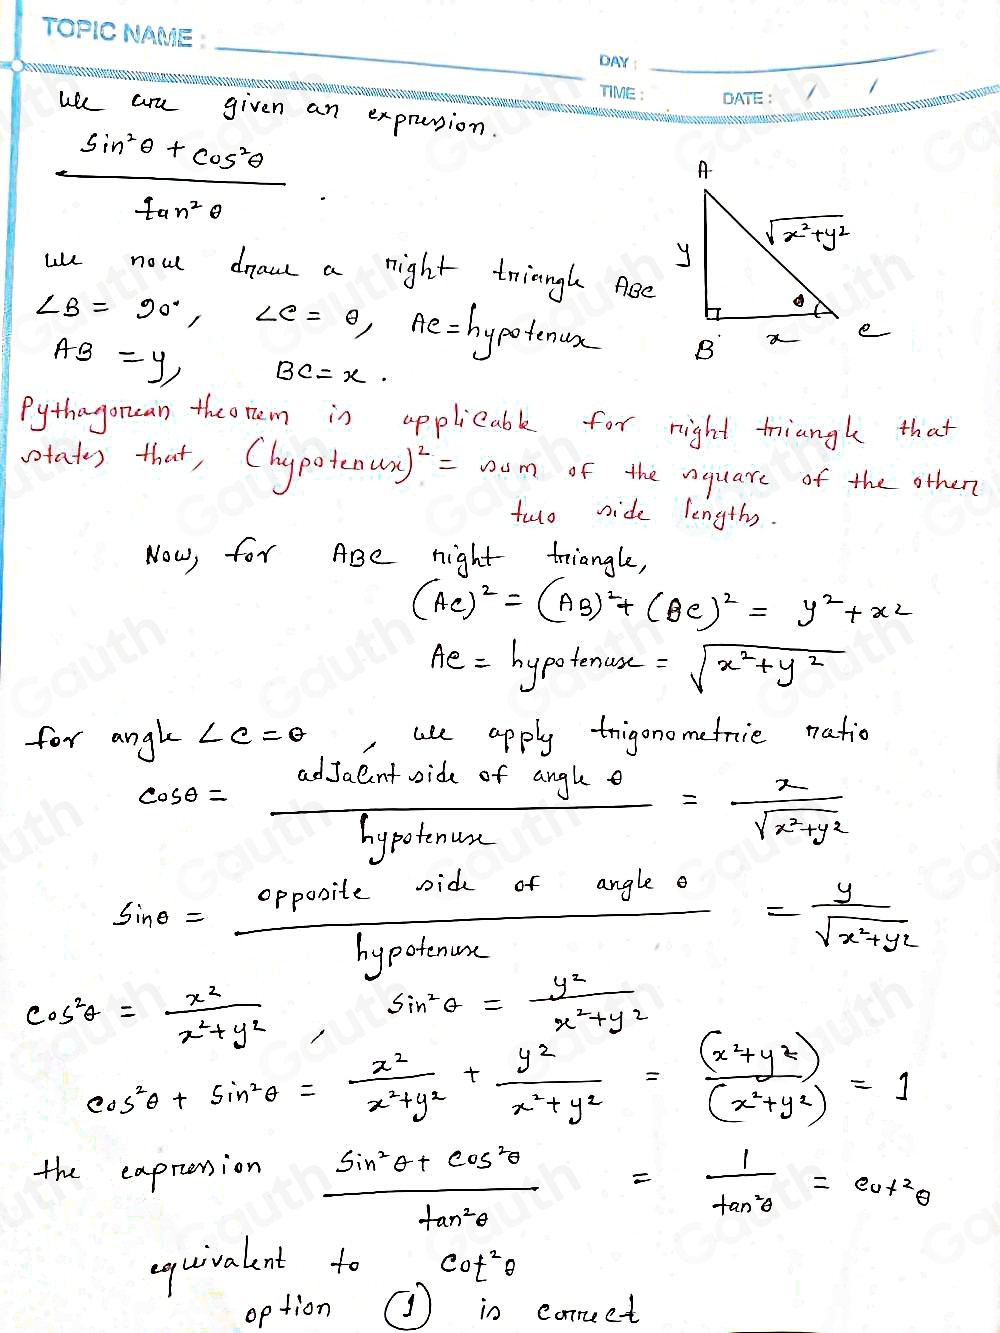 TOPIC NAME :
DAY :
TIME : DATE : / /
We are given an expression.
sin²θ + cos²θ / tan²θ .
A
y √x²+y²
θ
B x C
we now draw a right triangle ABC
∠B = 90°, ∠C = θ, AC = hypotenuse
AB = y, BC = x .
Pythagorean theorem is applicable for right triangle that
states that, (hypotenuse)² = sum of the square of the other
two side lengths.
Now, for ABC right triangle,
(AC)² = (AB)² + (BC)² = y² + x²
AC = hypotenuse = √x²+y²
for angle ∠C = θ , we apply trigonometric ratio
cosθ = adjacent side of angle θ / hypotenuse = x / √x²+y²
Sinθ = opposite side of angle θ / hypotenuse = y / √x²+y²
cos²θ = x² / x²+y² , sin²θ = y² / x²+y²
cos²θ + sin²θ = x² / x²+y² + y² / x²+y² = (x²+y²) / (x²+y²) = 1
the expression sin²θ + cos²θ / tan²θ = 1 / tan²θ = cot²θ
equivalent to cot²θ
option (1) is correct